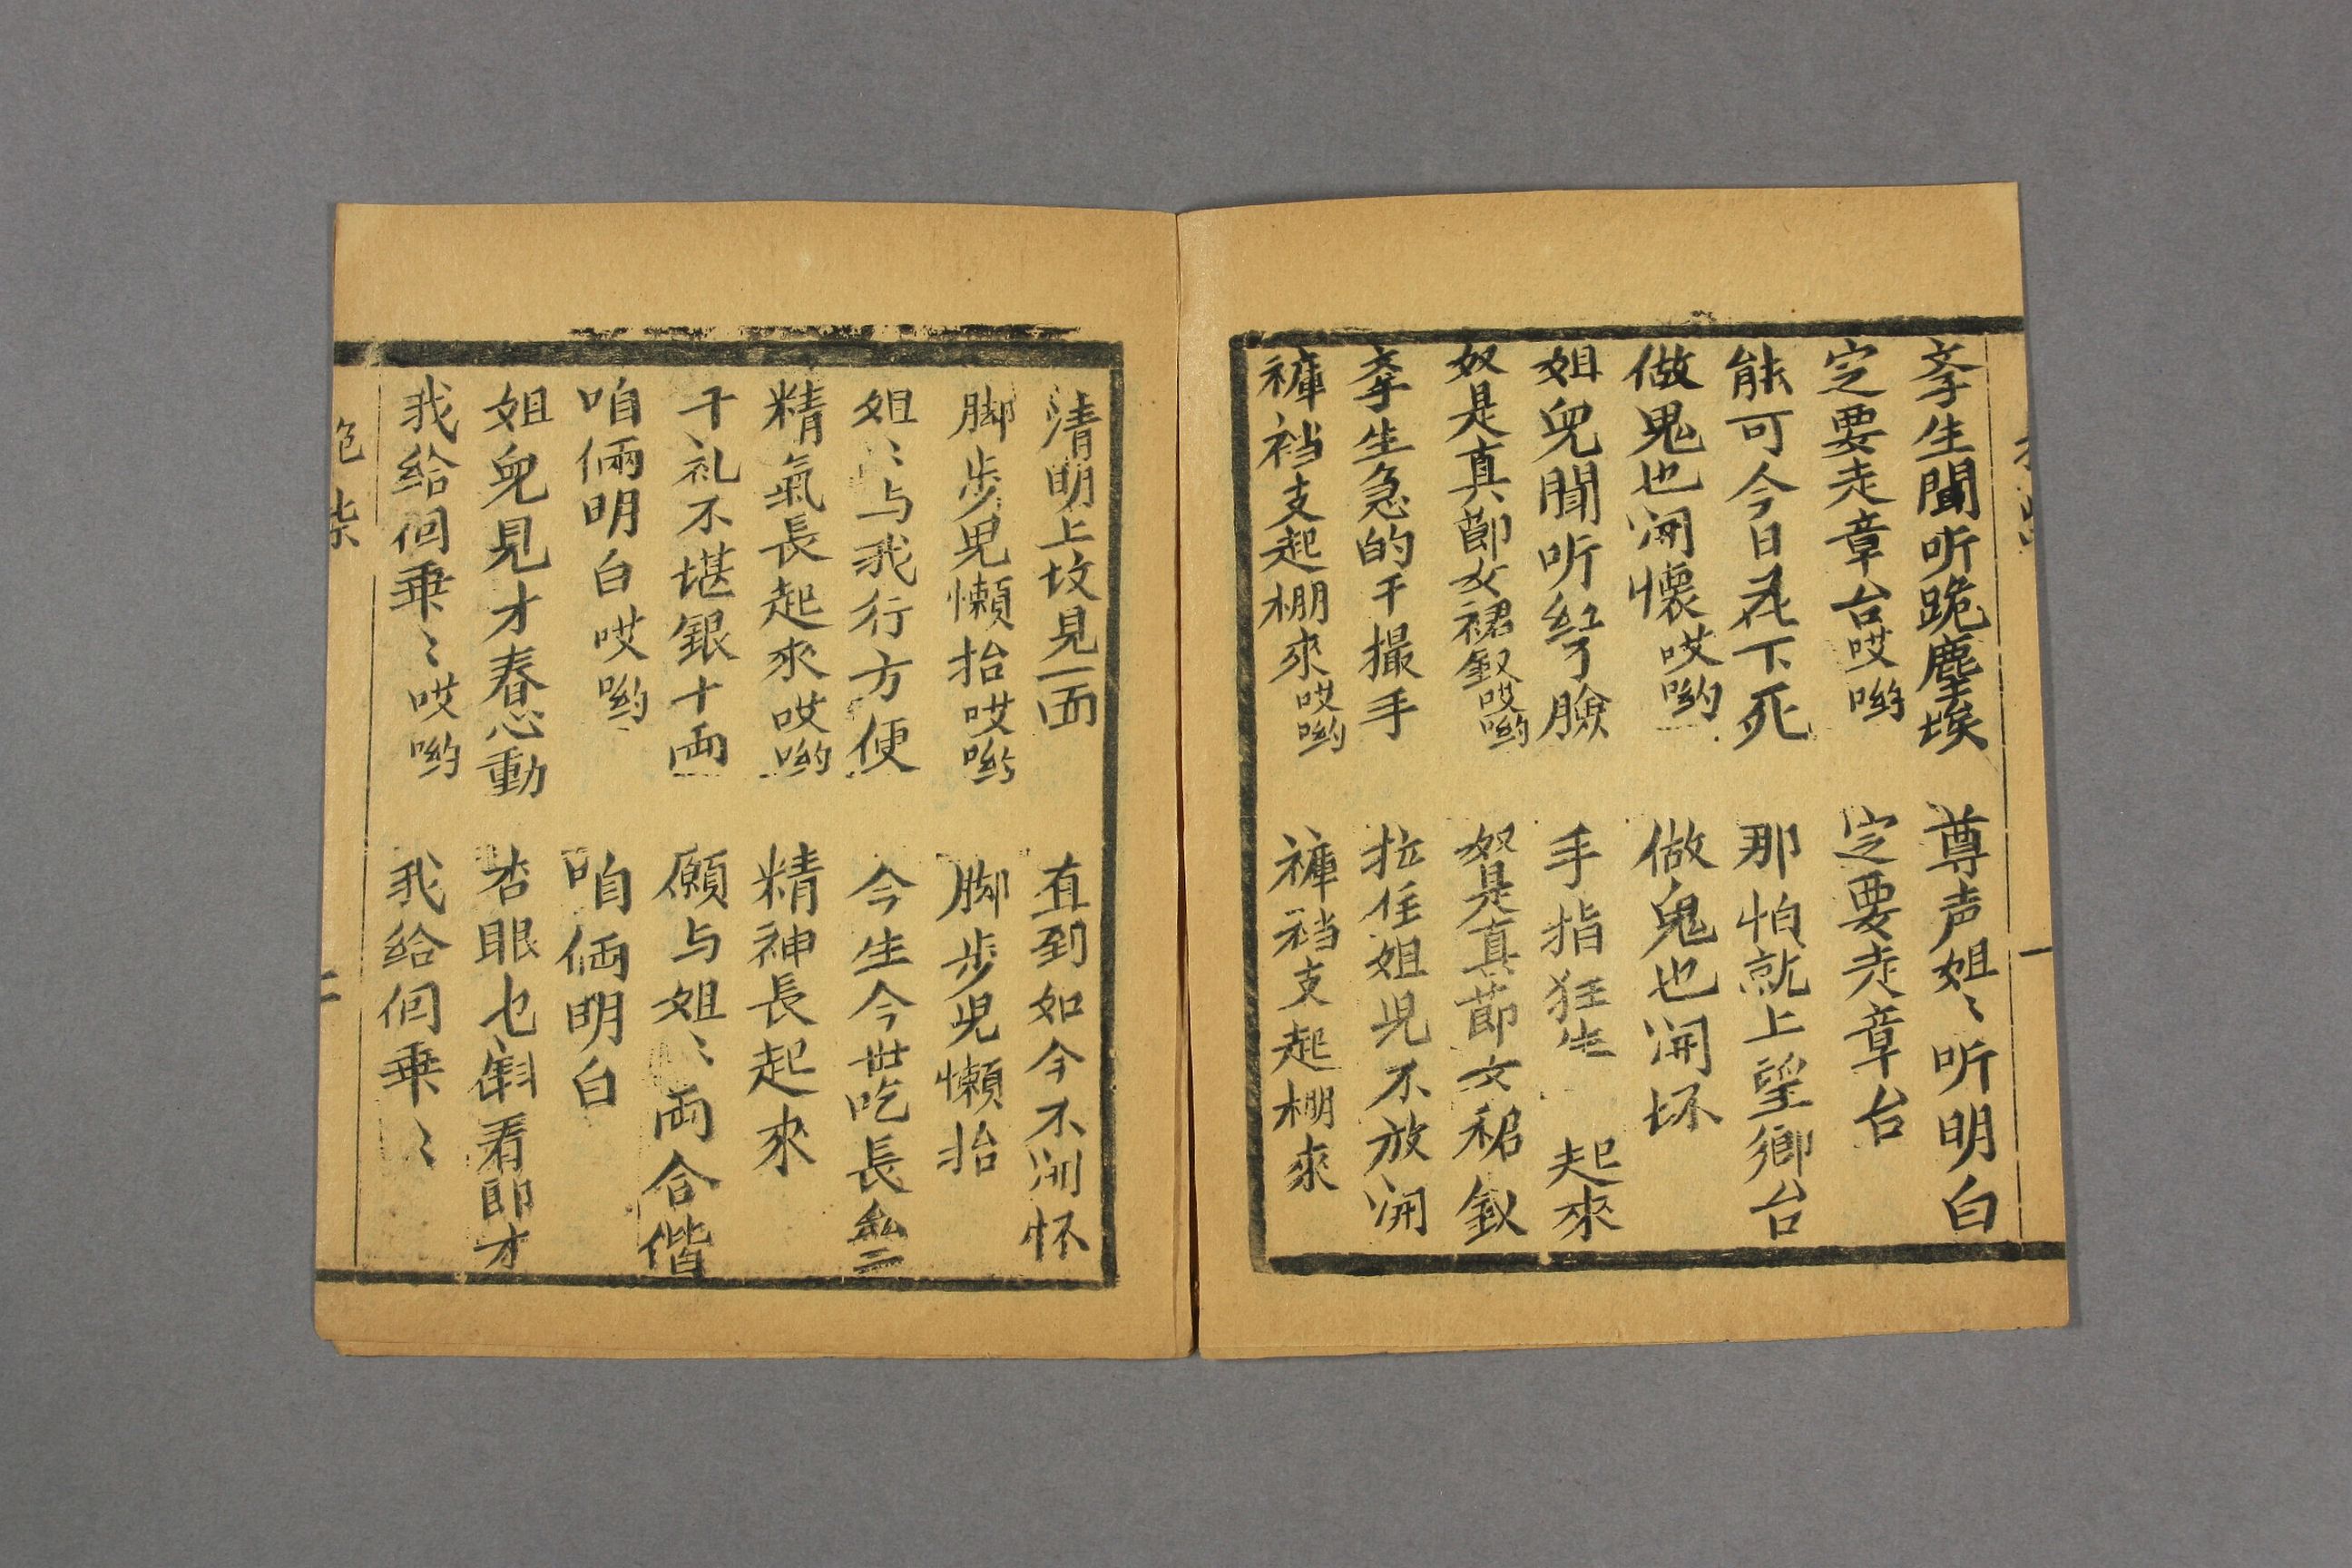 李生聞听跪塵埃　尊声姐〻听明白
定要走章台哎哟　定要走章台
能可今日花下死　那怕就上望鄉台
做鬼也開懷哎哟　做鬼也開怀
姐兒聞听紅了臉　手指狂生　起來
奴是真節女裙釵哎哟　奴是真節女裙釵
李生急的干撮手　拉住姐児不放開
褲裆支起棚來哎哟　褲裆支起棚來
一
清明上坟見一面　直到如今不開怀
脚步児懶抬哎哟　脚步児懶抬
姐〻与我行方便　今生今世吃長
精氣長起來哎哟　精神長起來
干礼不堪銀十両　願与姐〻両合偕
咱倆明白哎哟　咱倆明白
姐兒見才春心動　杏眼乜斜看郎才
我給個乖〻哎哟　我給個乖〻
二